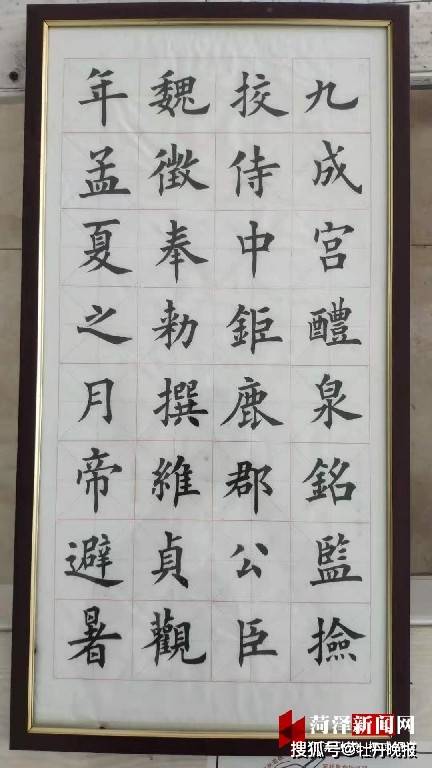 九成宮醴泉銘監撿
挍侍中鉅鹿郡公臣
魏徵奉勑撰維貞觀
年孟夏之月帝避暑
菏泽新闻网
搜狐号@牡丹晚报